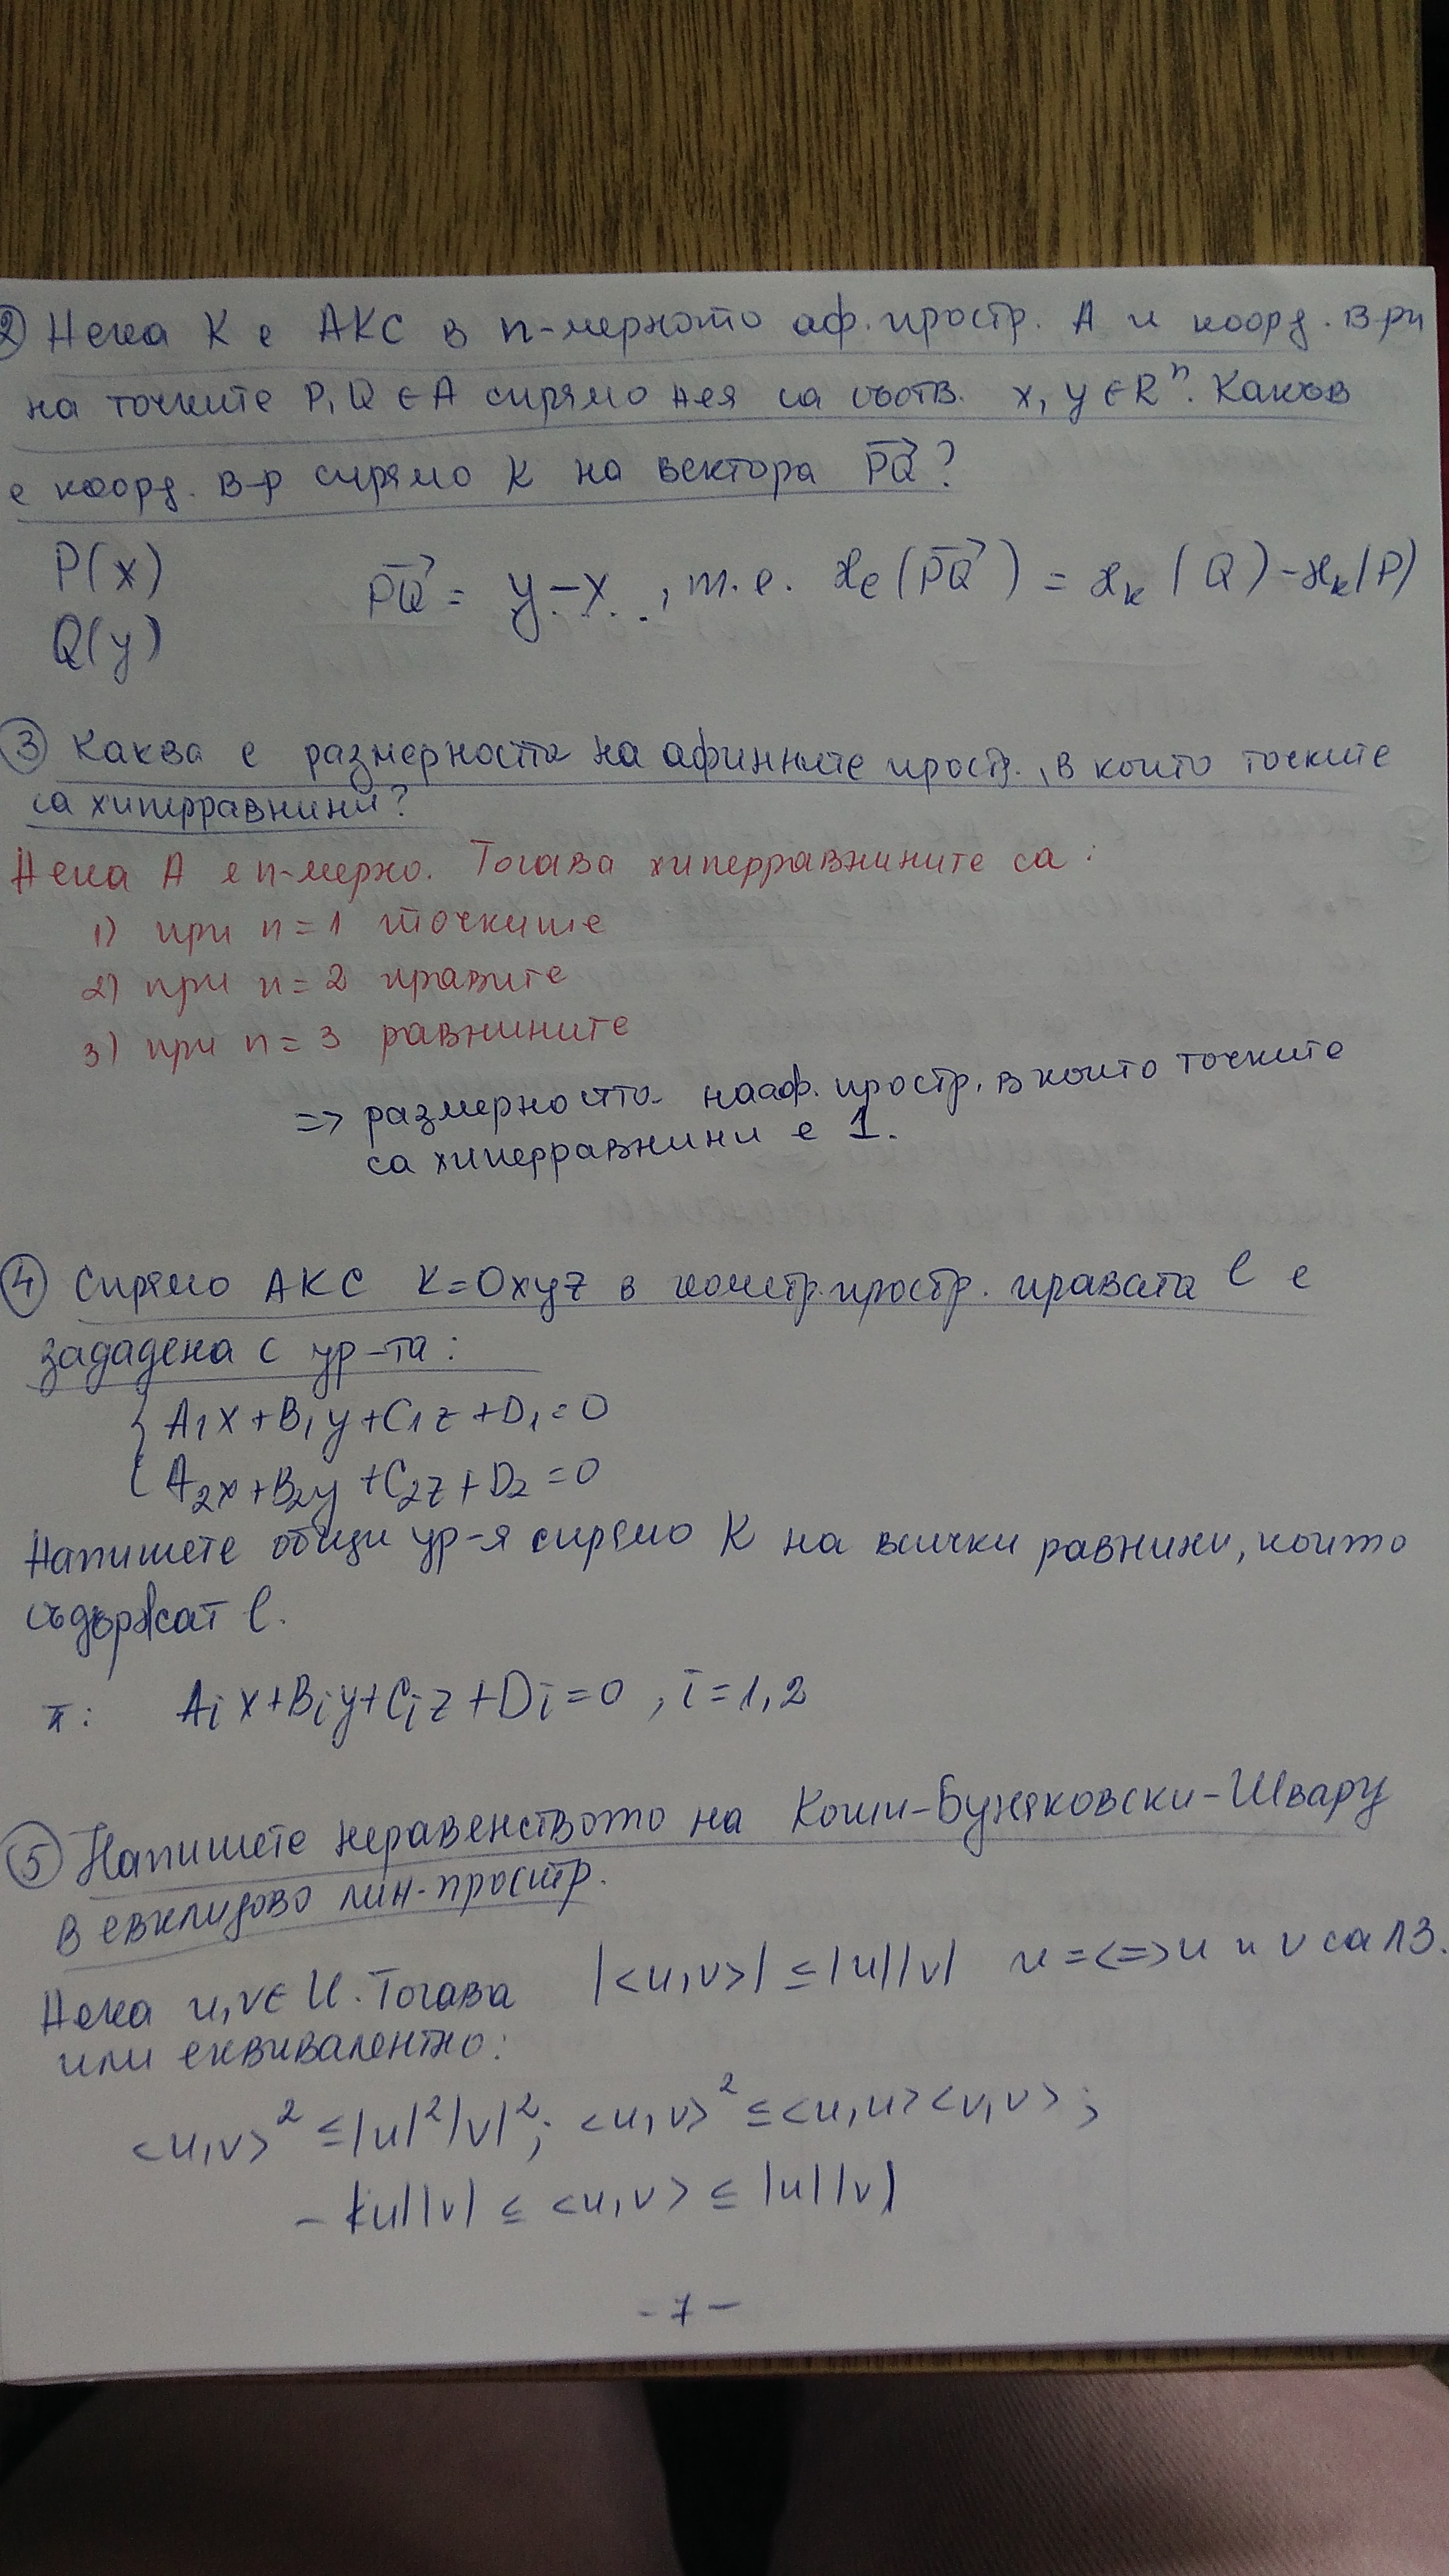 2) Нека K е АКС в n-мерното аф. простр. A и коорд. в-ри
на точките P, Q ∈ A спрямо нея са съотв. x, y ∈ R^n. Какъв
е коорд. в-р спрямо K на вектора PQ→?
P(x)
PQ→ = y - x, т.е. ϰe(PQ→) = ϰk(Q) - ϰk(P)
Q(y)
3) Каква е размерността на афинните простр., в които точките
са хиперравнини?
Нека A е n-мерно. Тогава хиперравнините са:
1) при n = 1 точките
2) при n = 2 правите
3) при n = 3 равнините
=> размерността на аф. простр. в които точките
са хиперравнини е 1.
4) Спрямо АКС K=Oxyz в геометр. простр. правата l е
зададена с ур-та:
{ A₁x + B₁y + C₁z + D₁ = 0
A₂x + B₂y + C₂z + D₂ = 0
Напишете общи ур-я спрямо K на всички равнини, които
съдържат l.
π: Aᵢx + Bᵢy + Cᵢz + Dᵢ = 0, i = 1, 2
5) Напишете неравенството на Коши-Буняковски-Шварц
в евклидово лин. простр.
Нека u, v ∈ U. Тогава |<u,v>| ≤ |u||v| и = <=> u и v са ЛЗ.
или еквивалентно:
<u,v>² ≤ |u|²|v|²; <u,v>² ≤ <u,u><v,v>;
- |u||v| ≤ <u,v> ≤ |u||v|
- 7 -